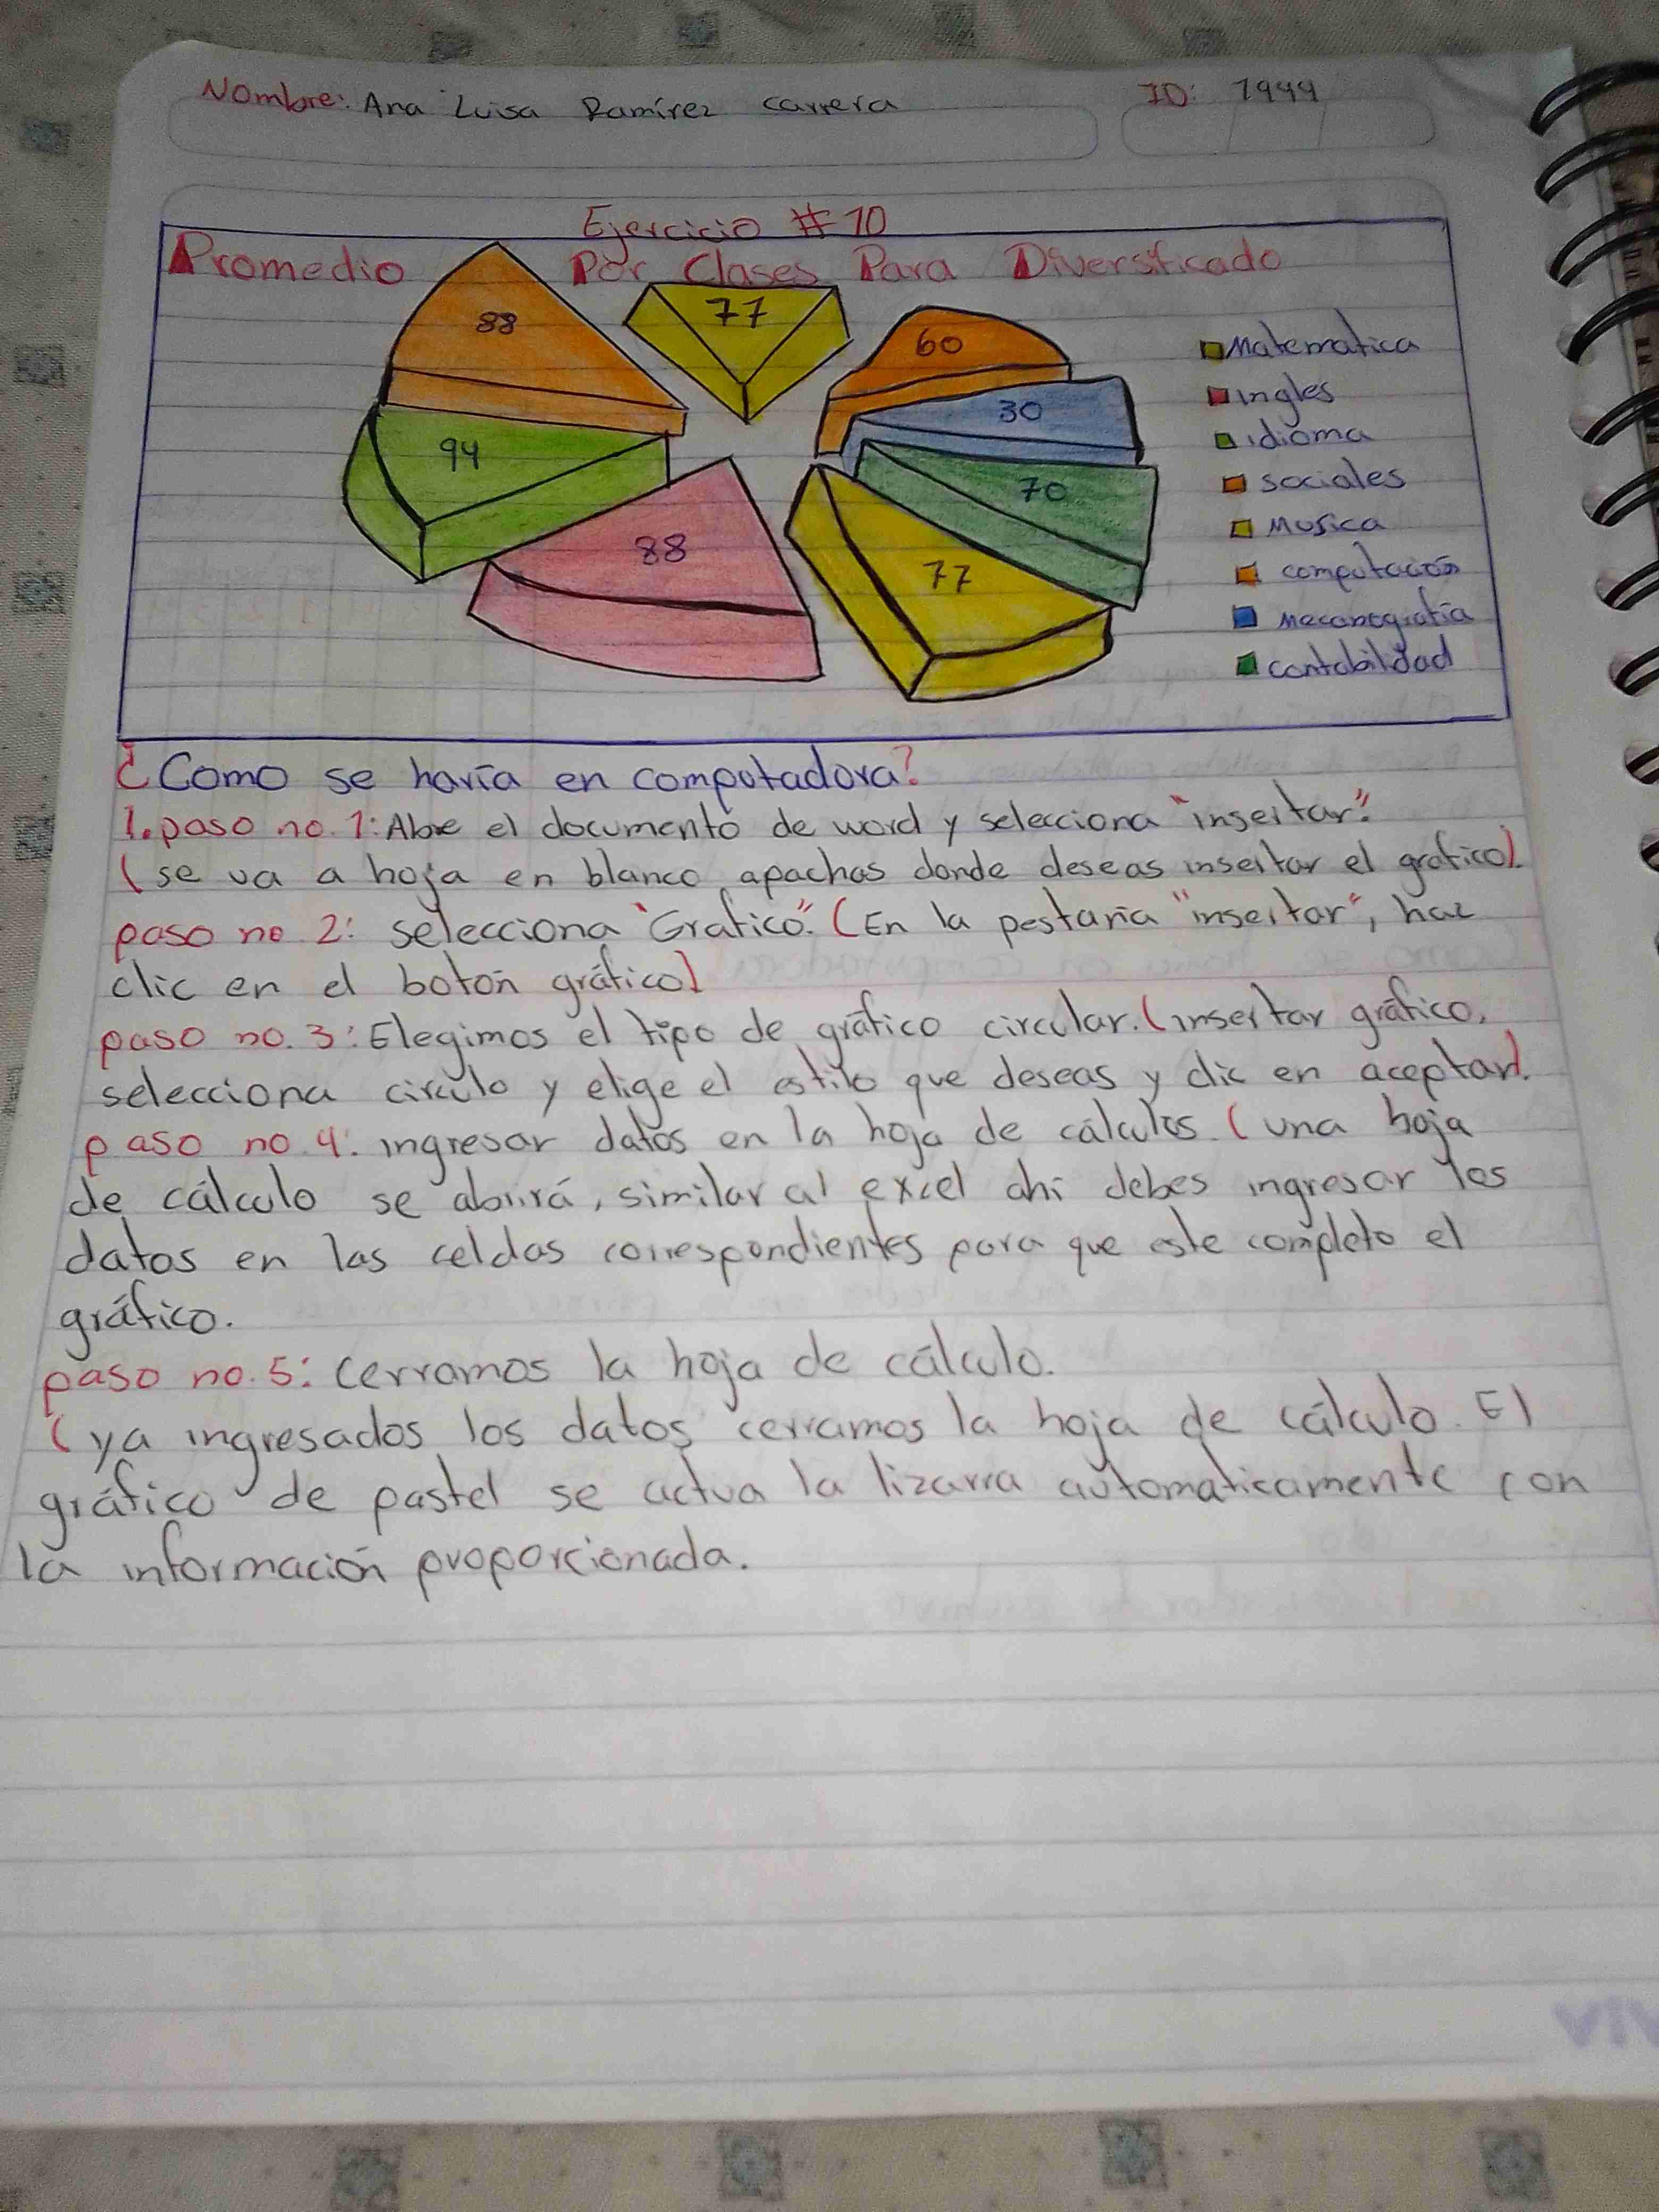 Nombre: Ana Luisa Ramírez carrera
ID: 1999
Ejercicio #10
Promedio Por Clases Para Diversificado
88
77
60
30
94
70
88
77
Matematica
ingles
idioma
sociales
Musica
computación
Mecanografia
contabilidad
¿Como se haría en computadora?
1. paso no. 1: Abre el documento de word y selecciona "insertar".
(se va a hoja en blanco apachas donde deseas insertar el grafico).
paso no. 2: selecciona "Grafico". (En la pestaña "insertar", haz
clic en el botón gráfico)
paso no. 3: Elegimos el tipo de gráfico circular. (insertar gráfico,
selecciona circulo y elige el estilo que deseas y clic en aceptar).
paso no. 4: ingresar datos en la hoja de cálculos. (una hoja
de cálculo se abrirá, similar al excel ahi debes ingresar los
datos en las celdas correspondientes para que este completo el
gráfico.
paso no. 5: Cerramos la hoja de cálculo.
(ya ingresados los datos cerramos la hoja de cálculo. El
gráfico de pastel se actua la lizarra automaticamente con
la información proporcionada.